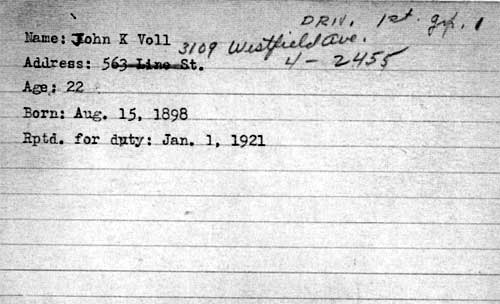 DRIV. 1st. grp. 1
Name: John K Voll 3109 Westfield Ave.
Address: 563 Line St. 4-2455
Age: 22
Born: Aug. 15, 1898
Rptd. for duty: Jan. 1, 1921